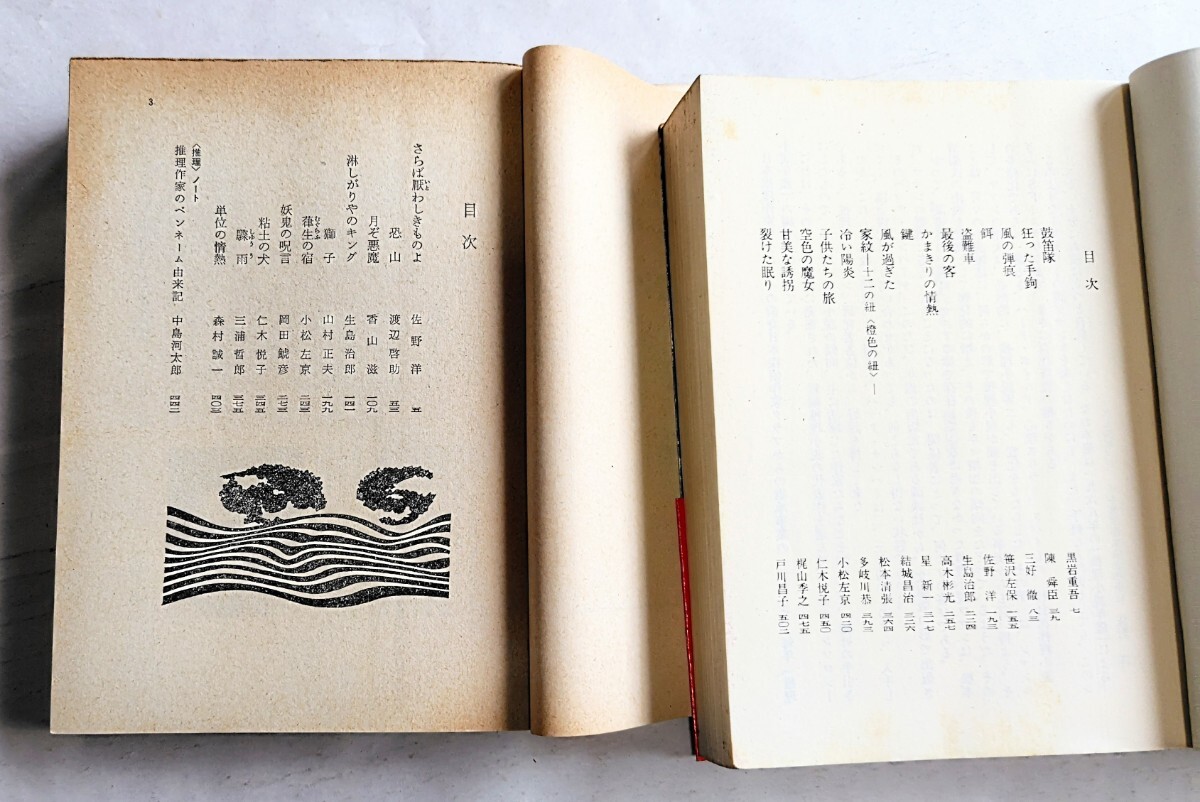 3
目次
さらば厭わしきものよ 佐野洋 五
恐山 渡辺啓助 五三
月ぞ悪魔 香山滋 一〇九
淋しがりやのキング 生島治郎 一四一
獅子 山村正夫 一九九
葎生の宿 小松左京 二四三
妖鬼の呪言 岡田鯱彦 二七三
粘土の犬 仁木悦子 三四五
驟雨 三浦哲郎 三七五
単位の情熱 森村誠一 四〇三
〈推理〉ノート
推理作家のペンネーム由来記 中島河太郎 四四二
目次
鼓笛隊 黒岩重吾 七
狂った手鉤 陳舜臣 三九
風の弾痕 三好徹 八三
餌 笹沢左保 一五五
盗難車 佐野洋 一九三
最後の客 生島治郎 二二四
かまきりの情熱 高木彬光 二五七
鍵 星新一 三一七
風が過ぎた 結城昌治 三二六
家紋―十二の紐〈橙色の紐〉― 松本清張 三六四
冷い陽炎 多岐川恭 三九三
子供たちの旅 小松左京 四二〇
空色の魔女 仁木悦子 四五〇
甘美な誘拐 梶山季之 四七五
裂けた眠り 戸川昌子 五〇二